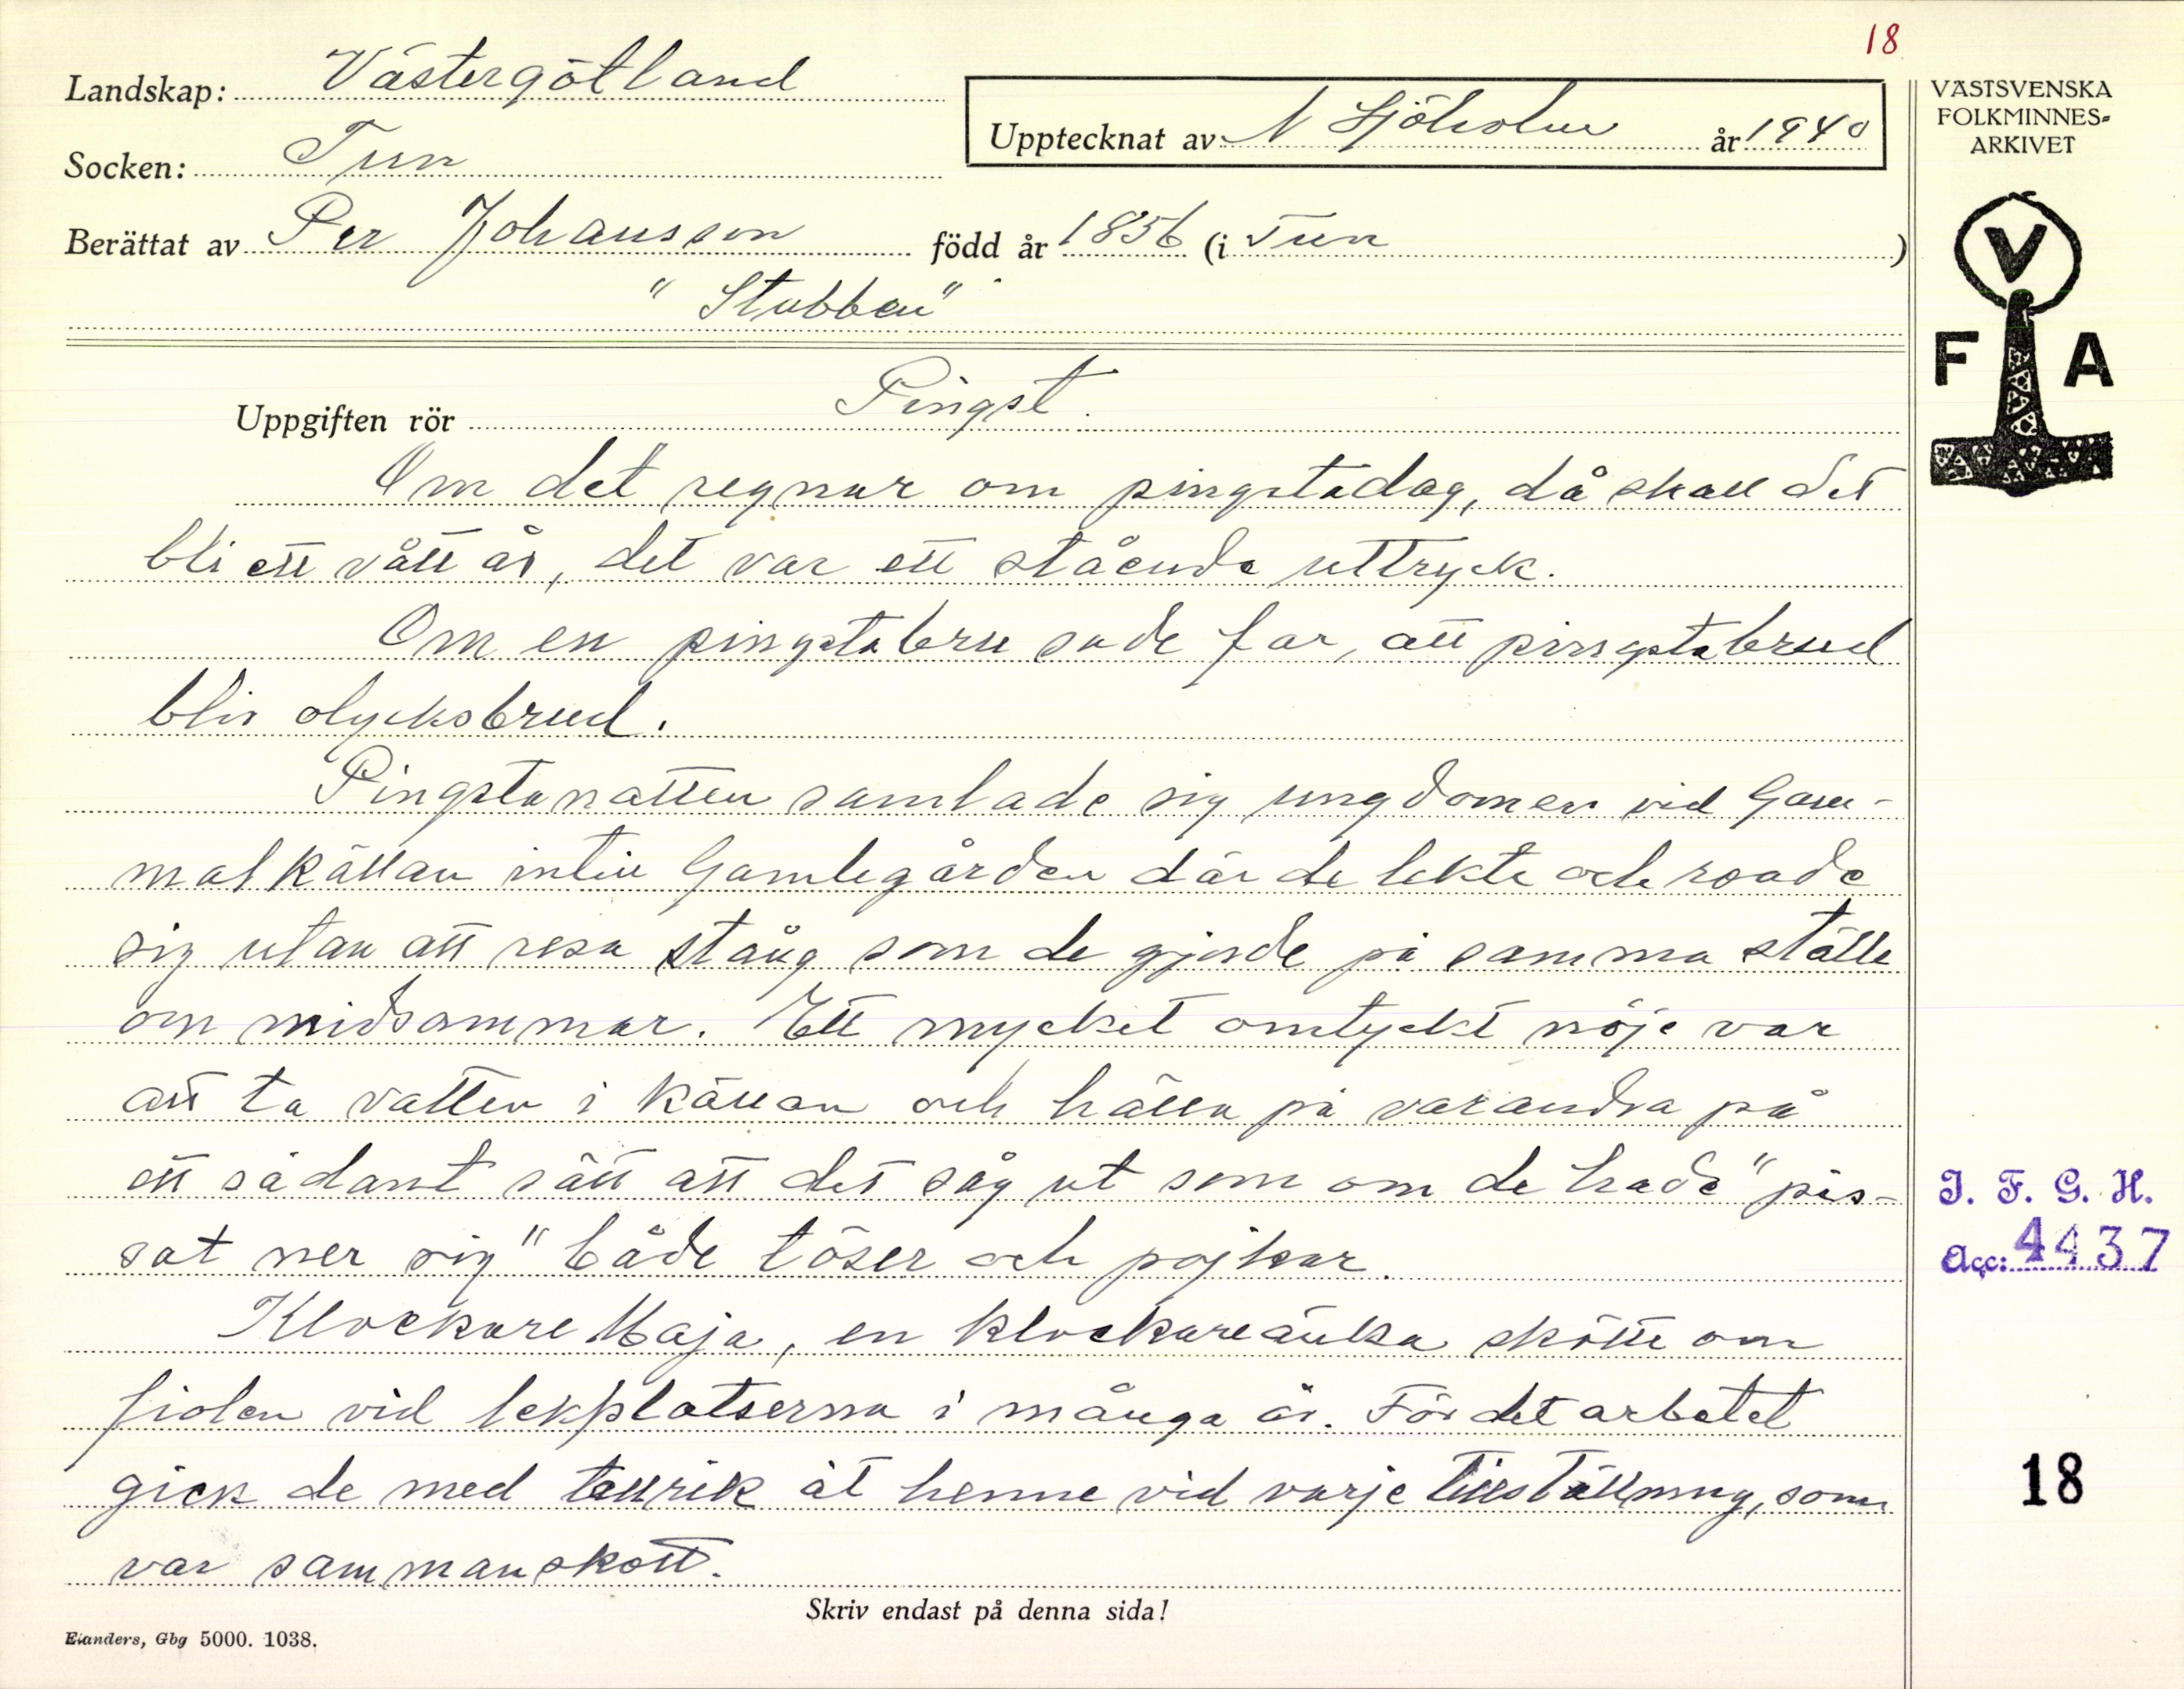 18
Landskap: Västergötland
Socken: Tun
Upptecknat av N Sjöholm år 1940
Berättat av Per Johansson född år 1856 (i Tun)
"Stubben"
Uppgiften rör Pingst.
Om det regnar om pingstadag, då skall det
bli ett vått år, det var ett stående uttryck.
Om en pingstabru sade far, att pingstabrud
blir olycksbrud.
Pingstanatten samlade sig ungdomen vid Gam-
malkällan intill Gamlegården där de lekte och roade
sig utan att resa stång som de gjorde på samma ställe
om midsommar. Ett mycket omtyckt nöje var
att ta vatten i källan och hälla på varandra på
ett sådant sätt att det såg ut som om de hade "pis-
sat ner sig" både töser och pojkar.
Klockare Maja, en klockareänka skötte om
fiolen vid lekplatserna i många år. För det arbetet
gick de med tallrik åt henne vid varje tillställning, som
var sammanskott.
Skriv endast på denna sida!
Elanders, Gbg 5000. 1038.
VÄSTSVENSKA
FOLKMINNES-
ARKIVET
V
F A
I. F. G. H.
Acc: 4437
18